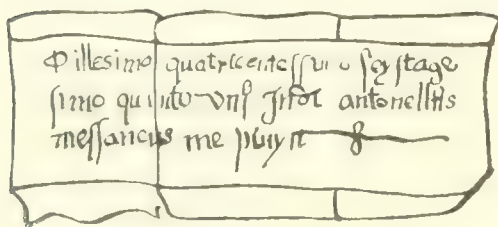 millesimo quatricentessimo sexstage
simo quinto antonellus
messaneus me pinxit